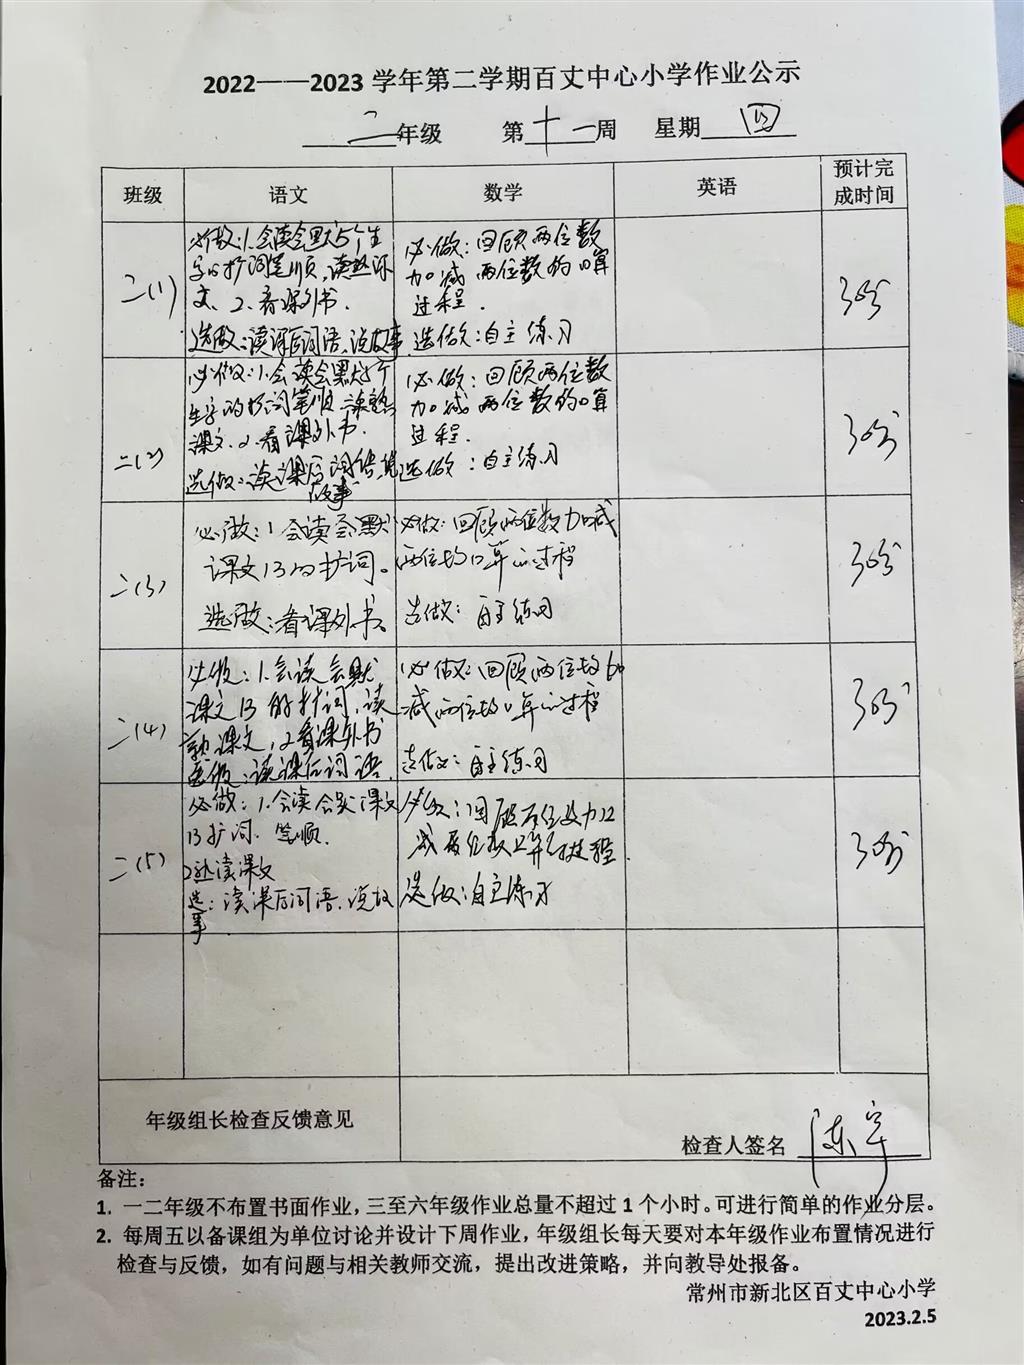 2022——2023 学年第二学期百丈中心小学作业公示
二年级 第十一周 星期四
班级 语文 数学 英语 预计完成时间
二(1)
必做:1.会读会默5个生
字的扩词笔顺,读熟课
文、2、看课外书.
选做:读课后词语、说故事
必做:回顾两位数
加减两位数的口算
过程.
选做:自主练习
30分
二(2)
必做:1.会读会默5个
生字的扩词笔顺、读熟
课文、2.看课外书.
选做:读课后词语,
故事
必做:回顾两位数
加减两位数的口算
过程.
选做:自主练习
30分
二(3)
必做:1会读会默
课文13的扩词。
选做:看课外书。
必做:回顾两位数加减
两位数口算的过程
选做:自主练习
30分
二(4)
必做:1.会读会默
课文13的扩词,读
熟课文,2看课外书
选做:读课后词语.
必做:回顾两位数加
减两位数口算的过程
选做:自主练习
30分
二(5)
必做:1.会读会默课文
13扩词.笔顺.
2熟读课文
选:读课后词语.说故
事
必做:回顾两位数加
减两位数口算过程.
选做:自主练习
30分
年级组长检查反馈意见
检查人签名 陈
备注:
1. 一二年级不布置书面作业,三至六年级作业总量不超过 1 个小时。可进行简单的作业分层。
2. 每周五以备课组为单位讨论并设计下周作业,年级组长每天要对本年级作业布置情况进行
检查与反馈,如有问题与相关教师交流,提出改进策略,并向教导处报备。
常州市新北区百丈中心小学
2023.2.5